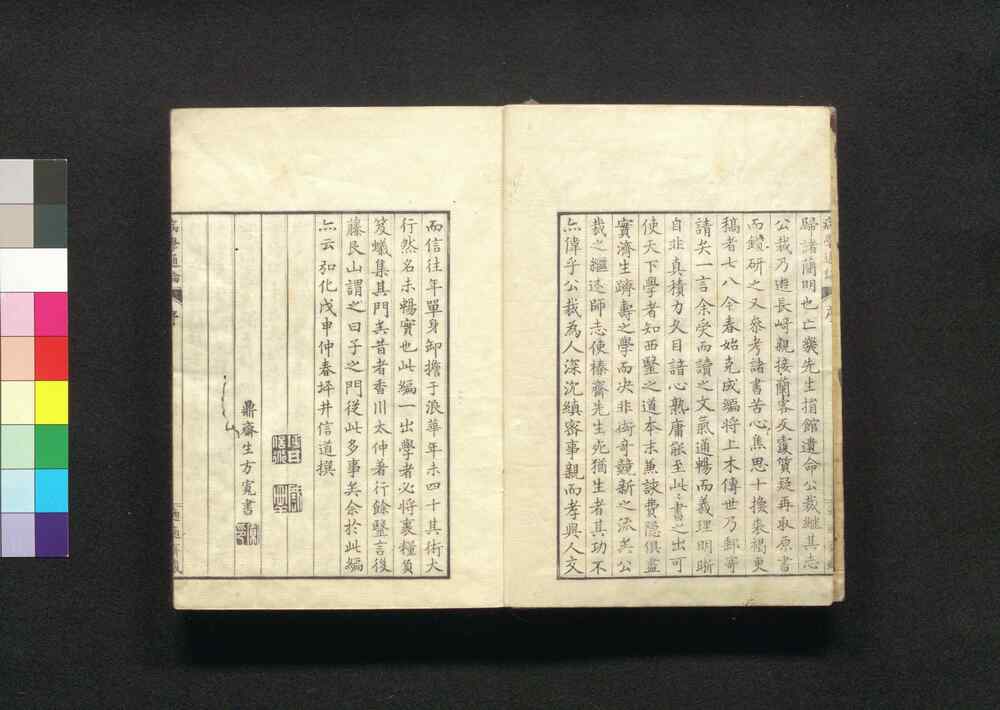 歸諸蘭明也亡幾先生捐館遺命公裁継其志
公裁乃遊長崎親接蘭客反覆質疑再取原書
而鑽研之又参考諸書苦心焦思十換裘褐更
稿者七八今春始克成編将上木傳世乃郵寄
請弁一言余受而讀之文氣通暢而義理明晰
自非真積力久目諳心熟庸能至此此書之出可
使天下學者知西醫之道本末兼該費隠俱盡
實濟生躋壽之學而决非衒奇競新之流矣公
裁之継述師志使榛齋先生死猶生者其功不
亦偉乎公裁為人深沈縝密事親而孝與人交
而信往年單身卸擔于浪華年未四十其術大
行然名未暢實也此編一出學者必将裹糧負
笈蟻集其門矣昔者香川太仲著行餘醫言後
藤艮山謂之曰子之門從此多事矣余於此編
亦云弘化戊申仲春坪井信道撰
鼎齋生方寛書
病學通論
序